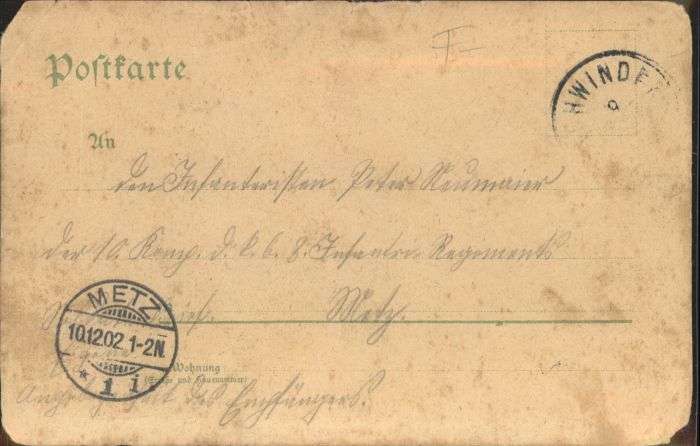 Postkarte
HWINDE
An
den Infanteristen Peter Neumaier
der 10. Komp. d. k. b. 8. Infantr. Regiments
Metz.
METZ
10.12.02. 1-2N.
* 1 i
Wohnung
(Straße und Hausnummer)
des Empfängers.